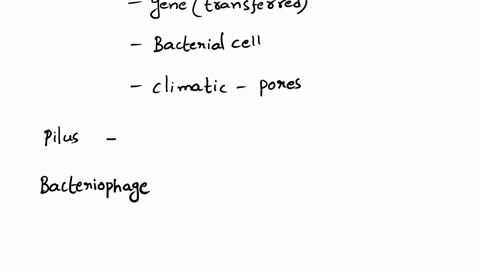 - gene (transferred)
- Bacterial cell
- climatic - pores
Pilus -
Bacteriophage